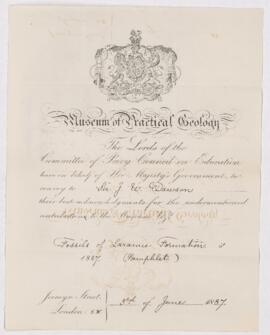 Museum of Practical Geology
The Lords of the
Committee of Privy Council on Education
have in behalf of Her Majesty's Government, to
convey to Sir J W Dawson
their best acknowledgments for the undermentioned
contributions to the Museum
Fossils of Laramie Formation
1887 (Pamphlet)
Jermyn Street,
London. SW
3rd of June 1887.